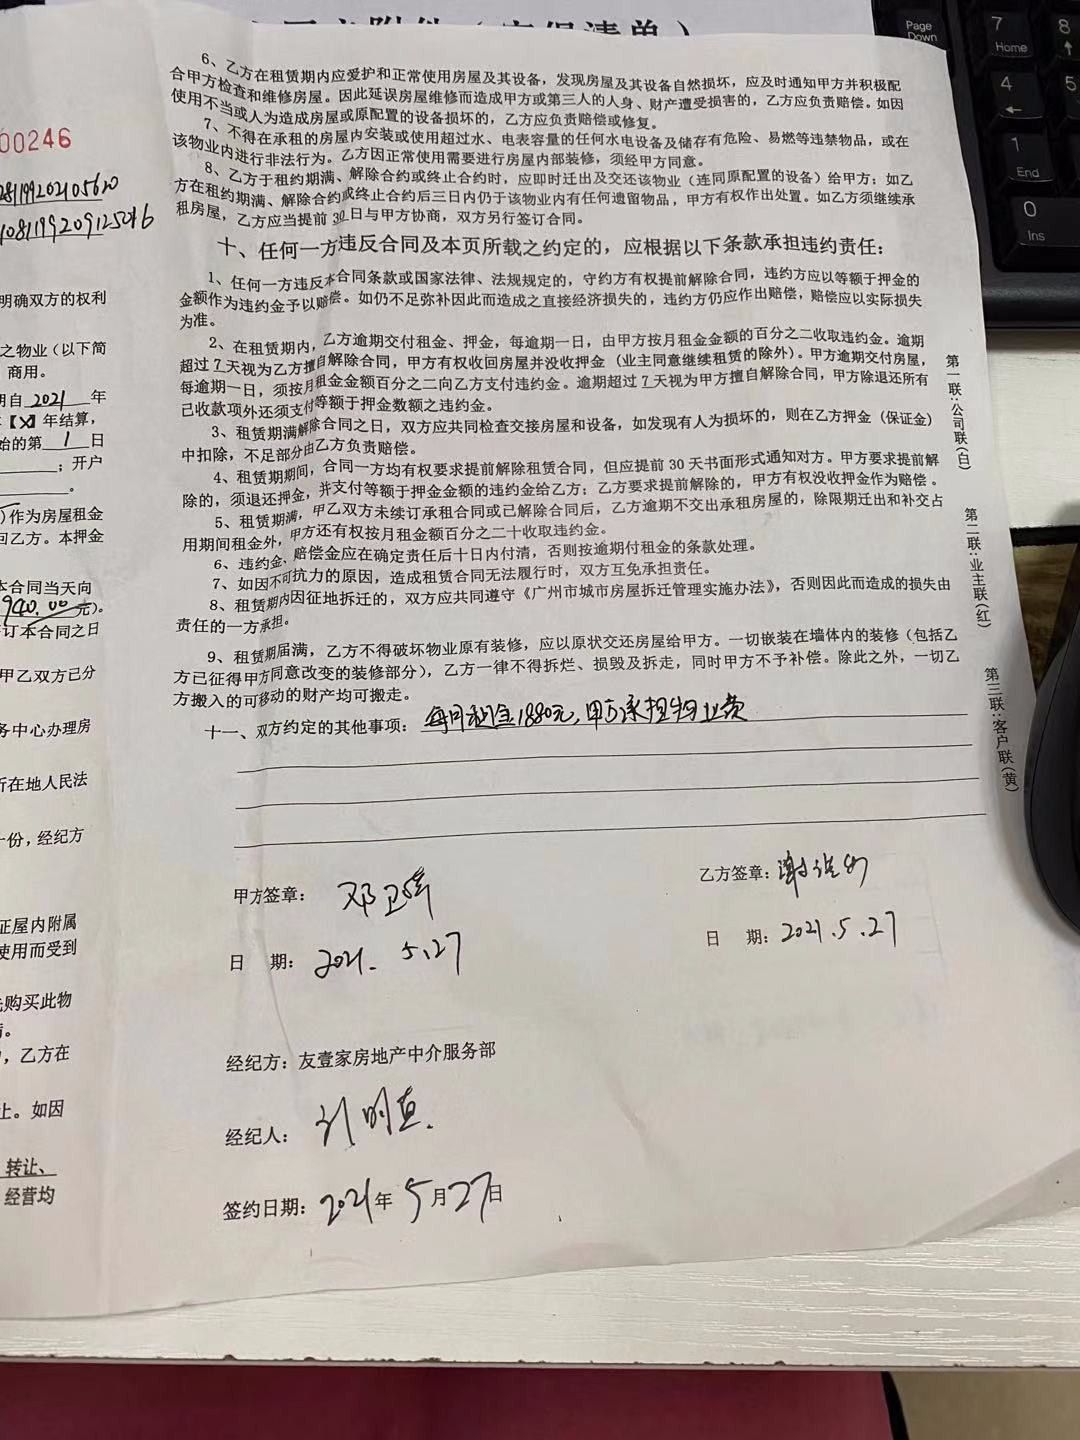 6、乙方在租赁期内应爱护和正常使用房屋及其设备，发现房屋及其设备自然损坏，应及时通知甲方并积极配
合甲方检查和维修房屋。因此延误房屋维修而造成甲方或第三人的人身、财产遭受损害的，乙方应负责赔偿。如因
使用不当或人为造成房屋或原配置的设备损坏的，乙方应负责赔偿或修复。
7、不得在承租的房屋内安装或使用超过水、电表容量的任何水电设备及储存有危险、易燃等违禁物品，或在
该物业内进行非法行为。乙方因正常使用需要进行房屋内部装修，须经甲方同意。
8、乙方于租约期满、解除合约或终止合约时，应即时迁出及交还该物业（连同原配置的设备）给甲方；如乙
方在租约期满、解除合约或终止合约后三日内仍于该物业内有任何遗留物品，甲方有权作出处置。如乙方须继续承
租房屋，乙方应当提前 30 日与甲方协商，双方另行签订合同。
十、任何一方违反合同及本页所载之约定的，应根据以下条款承担违约责任：
1、任何一方违反本合同条款或国家法律、法规规定的，守约方有权提前解除合同，违约方应以等额于押金的
金额作为违约金予以赔偿。如仍不足弥补因此而造成之直接经济损失的，违约方仍应作出赔偿，赔偿应以实际损失
为准。
2、在租赁期内，乙方逾期交付租金、押金，每逾期一日，由甲方按月租金金额的百分之二收取违约金。逾期
超过 7 天视为乙方擅自解除合同，甲方有权收回房屋并没收押金（业主同意继续租赁的除外）。甲方逾期交付房屋，
每逾期一日，须按月租金金额百分之二向乙方支付违约金。逾期超过 7 天视为甲方擅自解除合同，甲方除退还所有
已收款项外还须支付等额于押金数额之违约金。
3、租赁期满解除合同之日，双方应共同检查交接房屋和设备，如发现有人为损坏的，则在乙方押金（保证金）
中扣除，不足部分由乙方负责赔偿。
4、租赁期期间，合同一方均有权要求提前解除租赁合同，但应提前 30 天书面形式通知对方。甲方要求提前解
除的，须退还押金，并支付等额于押金金额的违约金给乙方；乙方要求提前解除的，甲方有权没收押金作为赔偿。
5、租赁期满，甲乙双方未续订承租合同或已解除合同后，乙方逾期不交出承租房屋的，除限期迁出和补交占
用期间租金外，甲方还有权按月租金额百分之二十收取违约金。
6、违约金、赔偿金应在确定责任后十日内付清，否则按逾期付租金的条款处理。
7、如因不可抗力的原因，造成租赁合同无法履行时，双方互免承担责任。
8、租赁期内因征地拆迁的，双方应共同遵守《广州市城市房屋拆迁管理实施办法》，否则因此而造成的损失由
责任的一方承担。
9、租赁期届满，乙方不得破坏物业原有装修，应以原状交还房屋给甲方。一切嵌装在墙体内的装修（包括乙
方已征得甲方同意改变的装修部分），乙方一律不得拆烂、损毁及拆走，同时甲方不予补偿。除此之外，一切乙
方搬入的可移动的财产均可搬走。
十一、双方约定的其他事项：每月租金1880元，甲方承担物业费
甲方签章：邓卫
乙方签章：谢
日 期：2021.5.27
日 期：2021.5.27
经纪方：友壹家房地产中介服务部
经纪人：
签约日期：2021年5月27日
第一联：公司联（白）
第二联：业主联（红）
第三联：客户联（黄）
00246
明确双方的权利
之物业（以下简
商用。
期自 2021 年
【X】年结算，
始的第 1 日
；开户
。
）作为房屋租金
回乙方。本押金
本合同当天向
940.00 元）。
订本合同之日
甲乙双方已分
务中心办理房
所在地人民法
份，经纪方
证屋内附属
使用而受到
购买此物
，乙方在
止。如因
转让、
经营均
Page
Down
7
Home
8
4
1
End
0
Ins